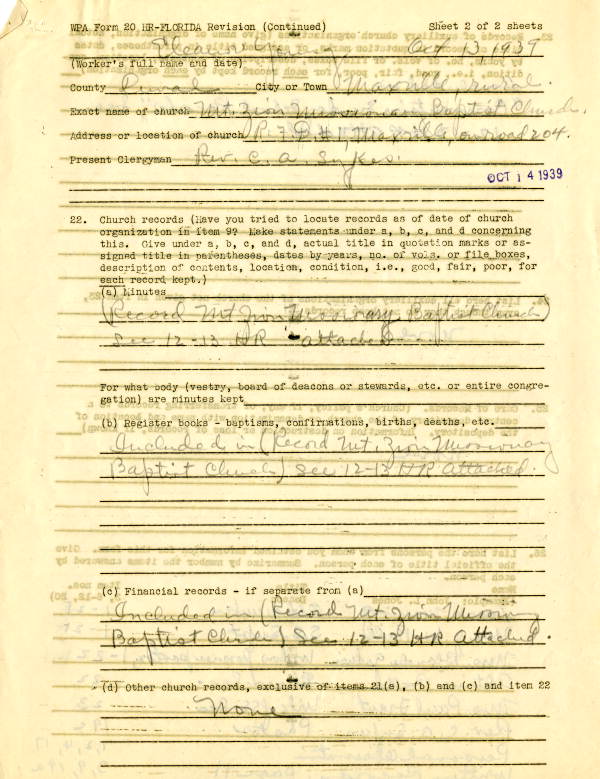 WPA Form 20 HR-FLORIDA Revision (Continued) Sheet 2 of 2 sheets
Eleanor Oct 13 1939
(Worker's full name and date)
County Duval City or Town Maxville, rural
Exact name of church Mt. Zion Missionary Baptist Church.
Address or location of church R.F.D. #1, Maxville, on road 204.
Present Clergyman Rev. C. A. Sykes.
OCT 14 1939
22. Church records (Have you tried to locate records as of date of church
organization in item 9? Make statements under a, b, c, and d concerning
this. Give under a, b, c, and d, actual title in quotation marks or as-
signed title in parentheses, dates by years, no. of vols. or file boxes,
description of contents, location, condition, i.e., good, fair, poor, for
each record kept.)
(a) Minutes
(Record Mt. Zion Missionary Baptist Church)
See 12-13 HR attached
For what body (vestry, board of deacons or stewards, etc. or entire congre-
gation) are minutes kept
(b) Register books - baptisms, confirmations, births, deaths, etc.
Included in (Record Mt. Zion Missionary
Baptist Church) See 12-13 HR attached.
(c) Financial records - if separate from (a)
Included in (Record Mt. Zion Missionary
Baptist Church) See 12-13 HR Attached.
(d) Other church records, exclusive of items 21(a), (b) and (c) and item 22
None